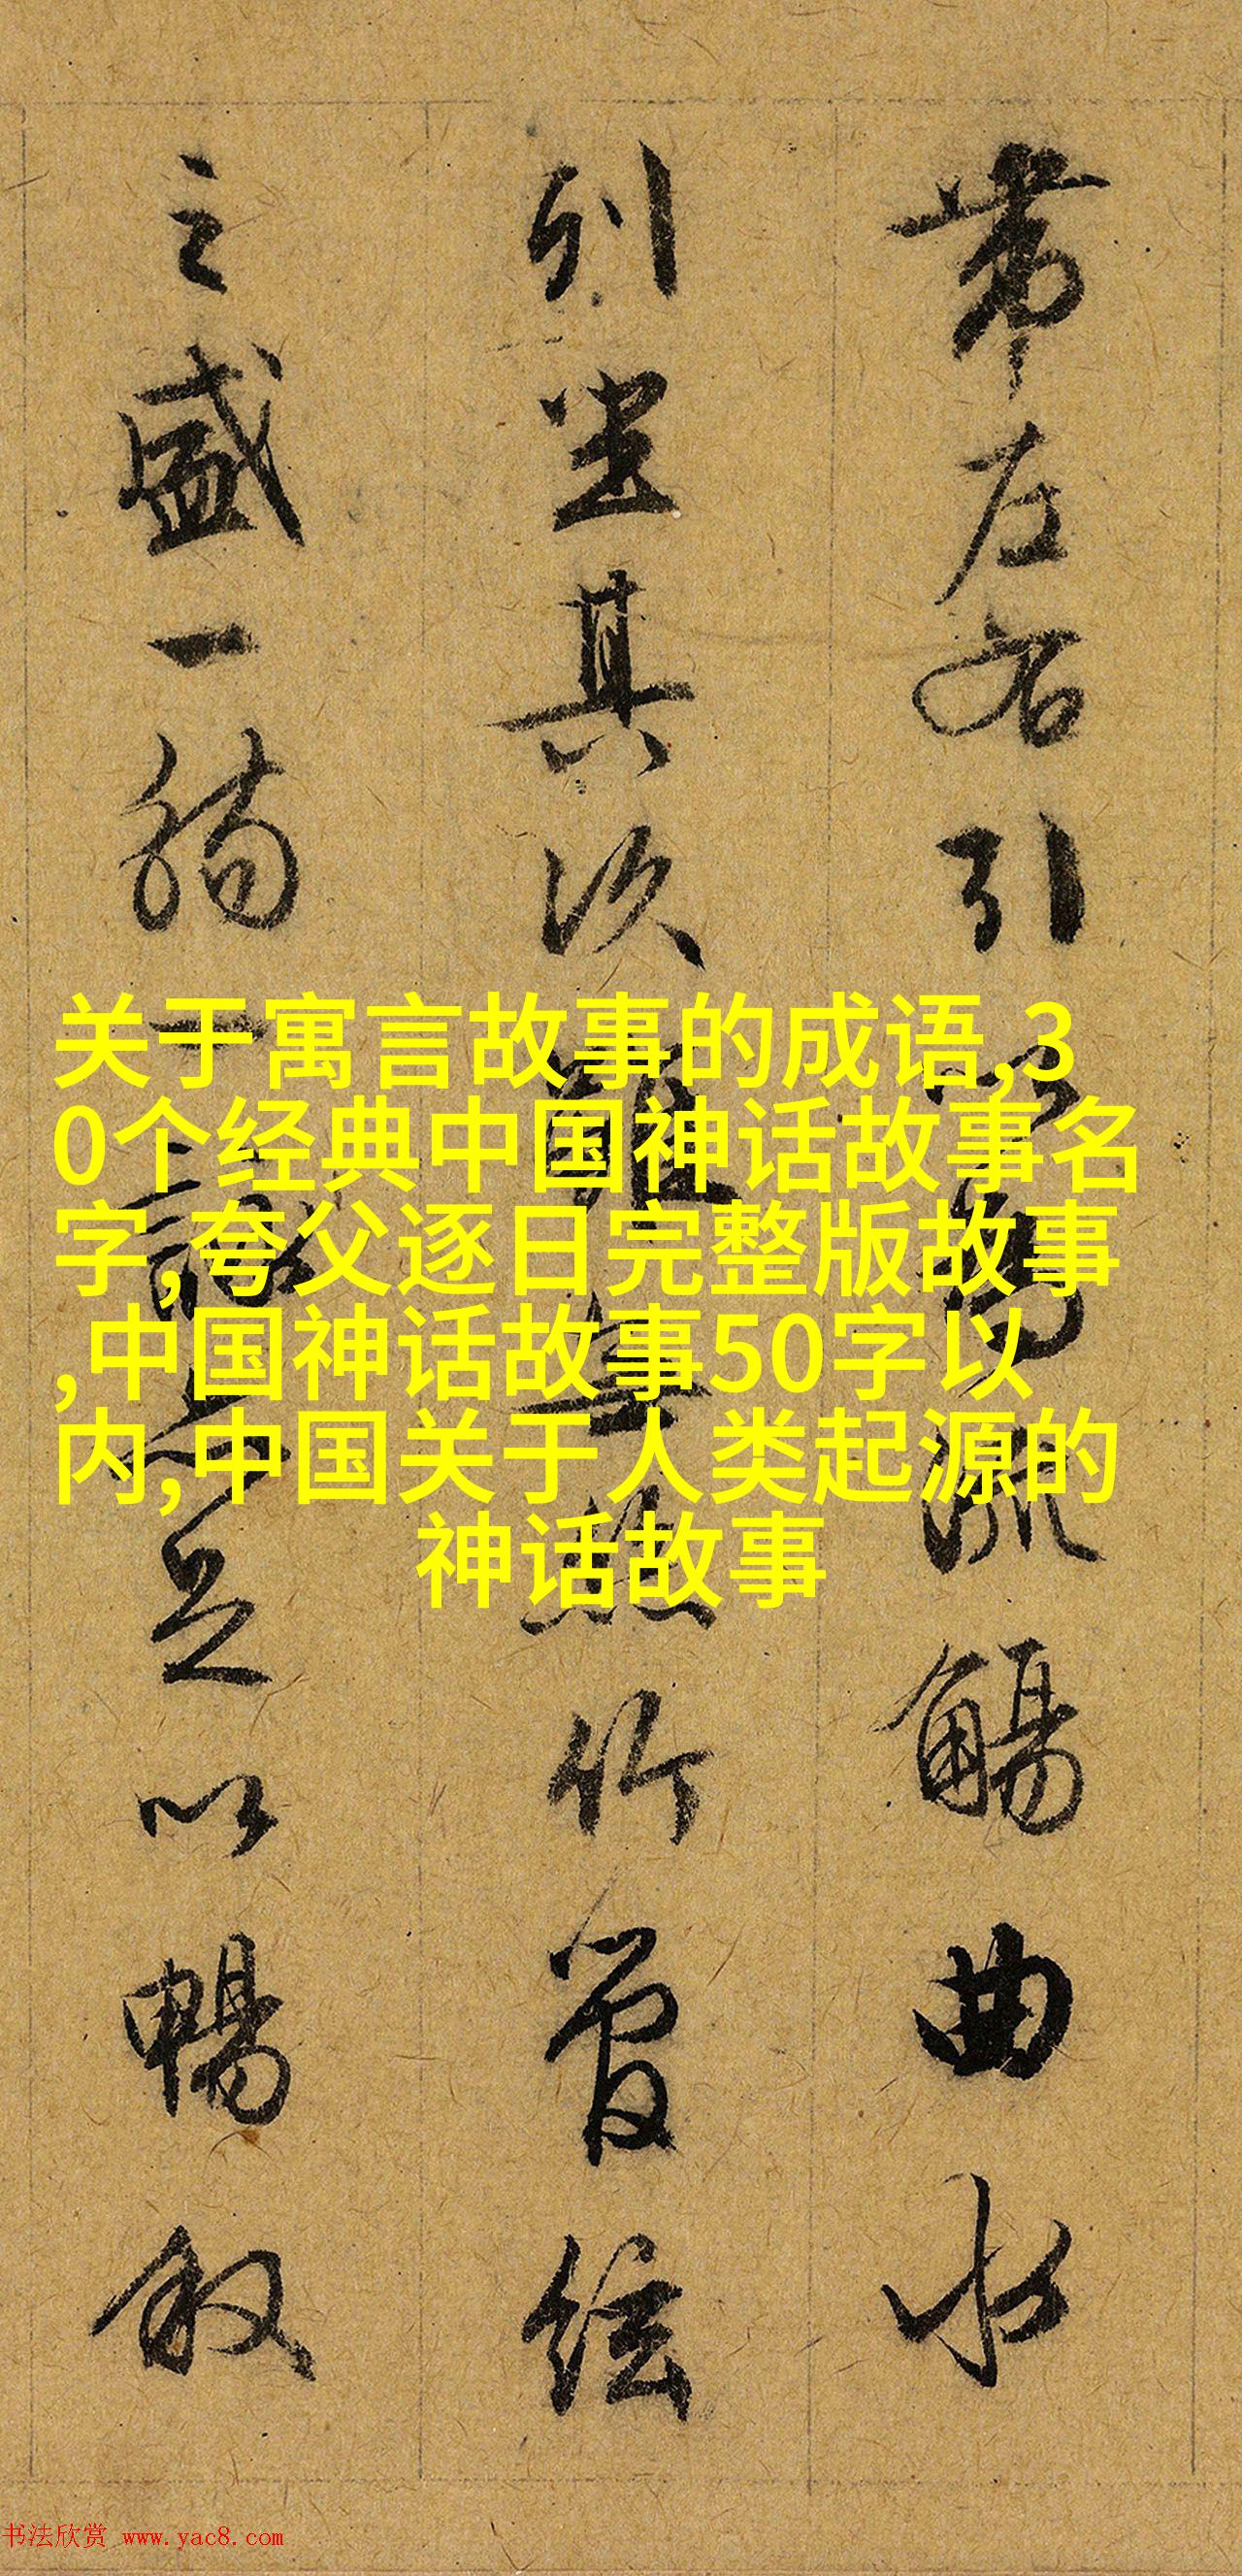 帶左右引以為流觴曲水
列坐其次雖無絲竹管絃
之盛一觴一詠亦足以暢敘
关于寓言故事的成语,3
0个经典中国神话故事名
字,夸父逐日完整版故事
,中国神话故事50字以
内,中国关于人类起源的
神话故事
书法欣赏 www.yac8.com